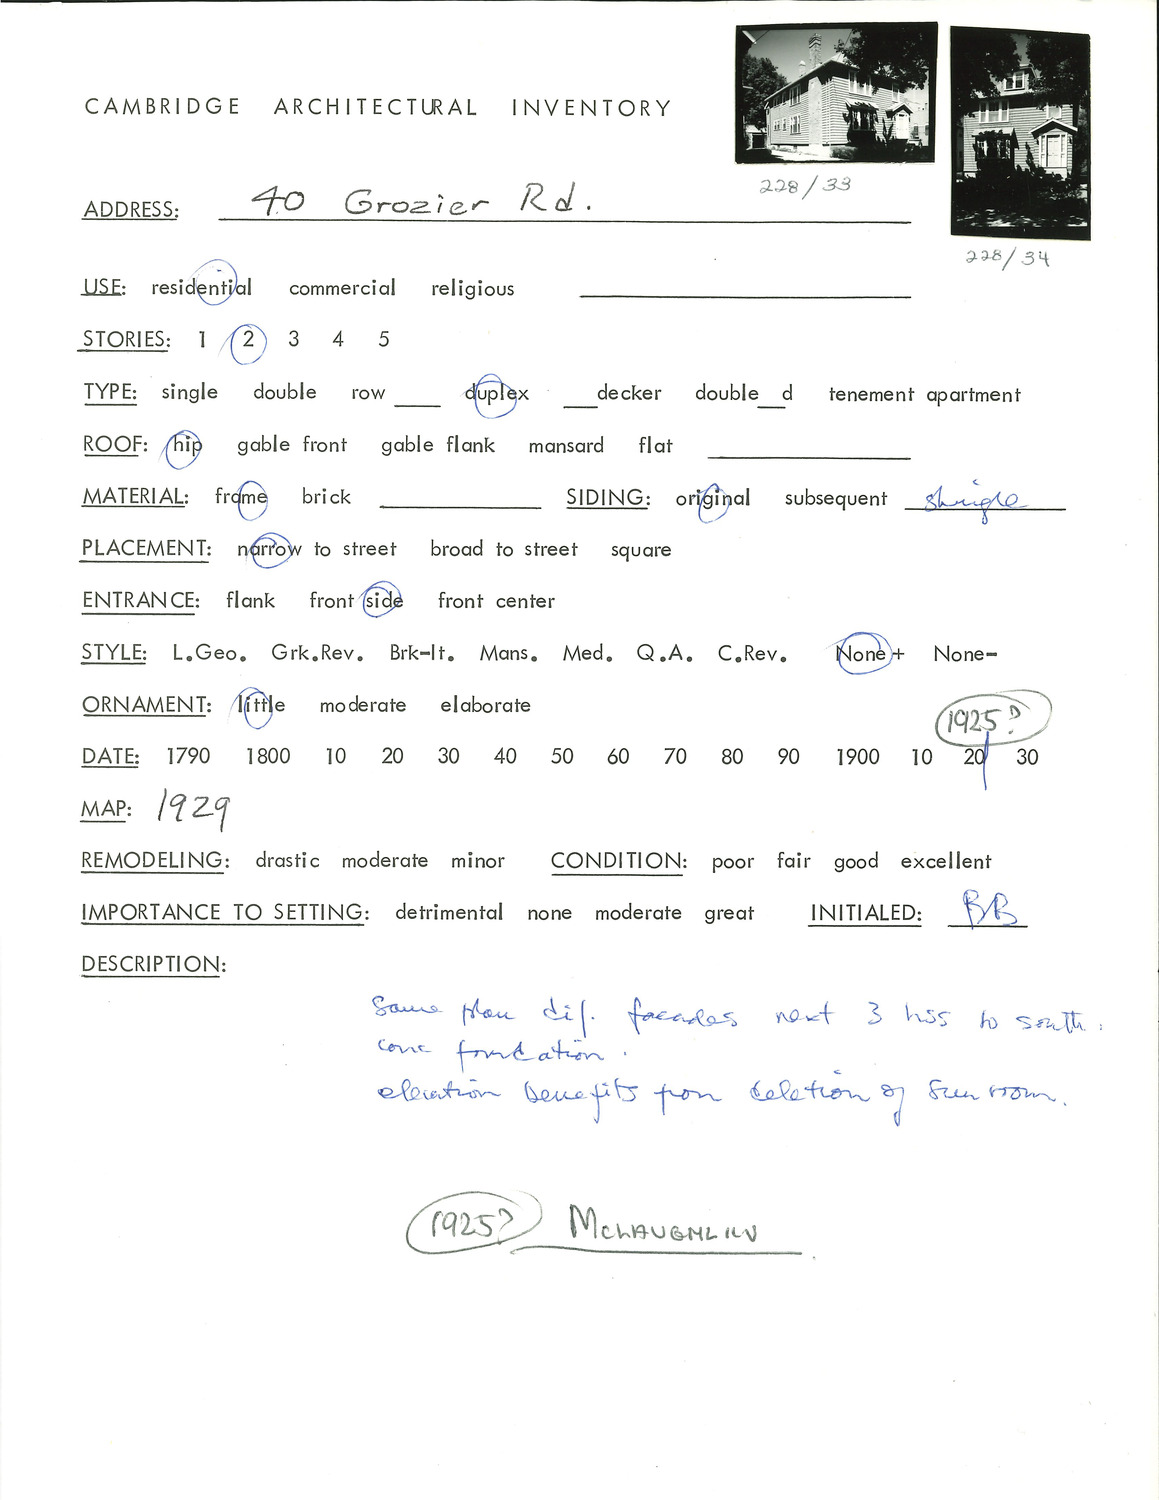 CAMBRIDGE ARCHITECTURAL INVENTORY
228/33
228/34
ADDRESS: 40 Grozier Rd.
USE: residential commercial religious
STORIES: 1 2 3 4 5
TYPE: single double row ___ duplex ___decker double__d tenement apartment
ROOF: hip gable front gable flank mansard flat
MATERIAL: frame brick SIDING: original subsequent shingle
PLACEMENT: narrow to street broad to street square
ENTRANCE: flank front side front center
STYLE: L.Geo. Grk.Rev. Brk-It. Mans. Med. Q.A. C.Rev. None+ None-
ORNAMENT: little moderate elaborate
1925?
DATE: 1790 1800 10 20 30 40 50 60 70 80 90 1900 10 20 30
MAP: 1929
REMODELING: drastic moderate minor CONDITION: poor fair good excellent
IMPORTANCE TO SETTING: detrimental none moderate great INITIALED: BB
DESCRIPTION:
Same plan dif. facades next 3 hss to south.
conc foundation.
elevation benefits from deletion of sun room.
1925? McLAUGHLIN